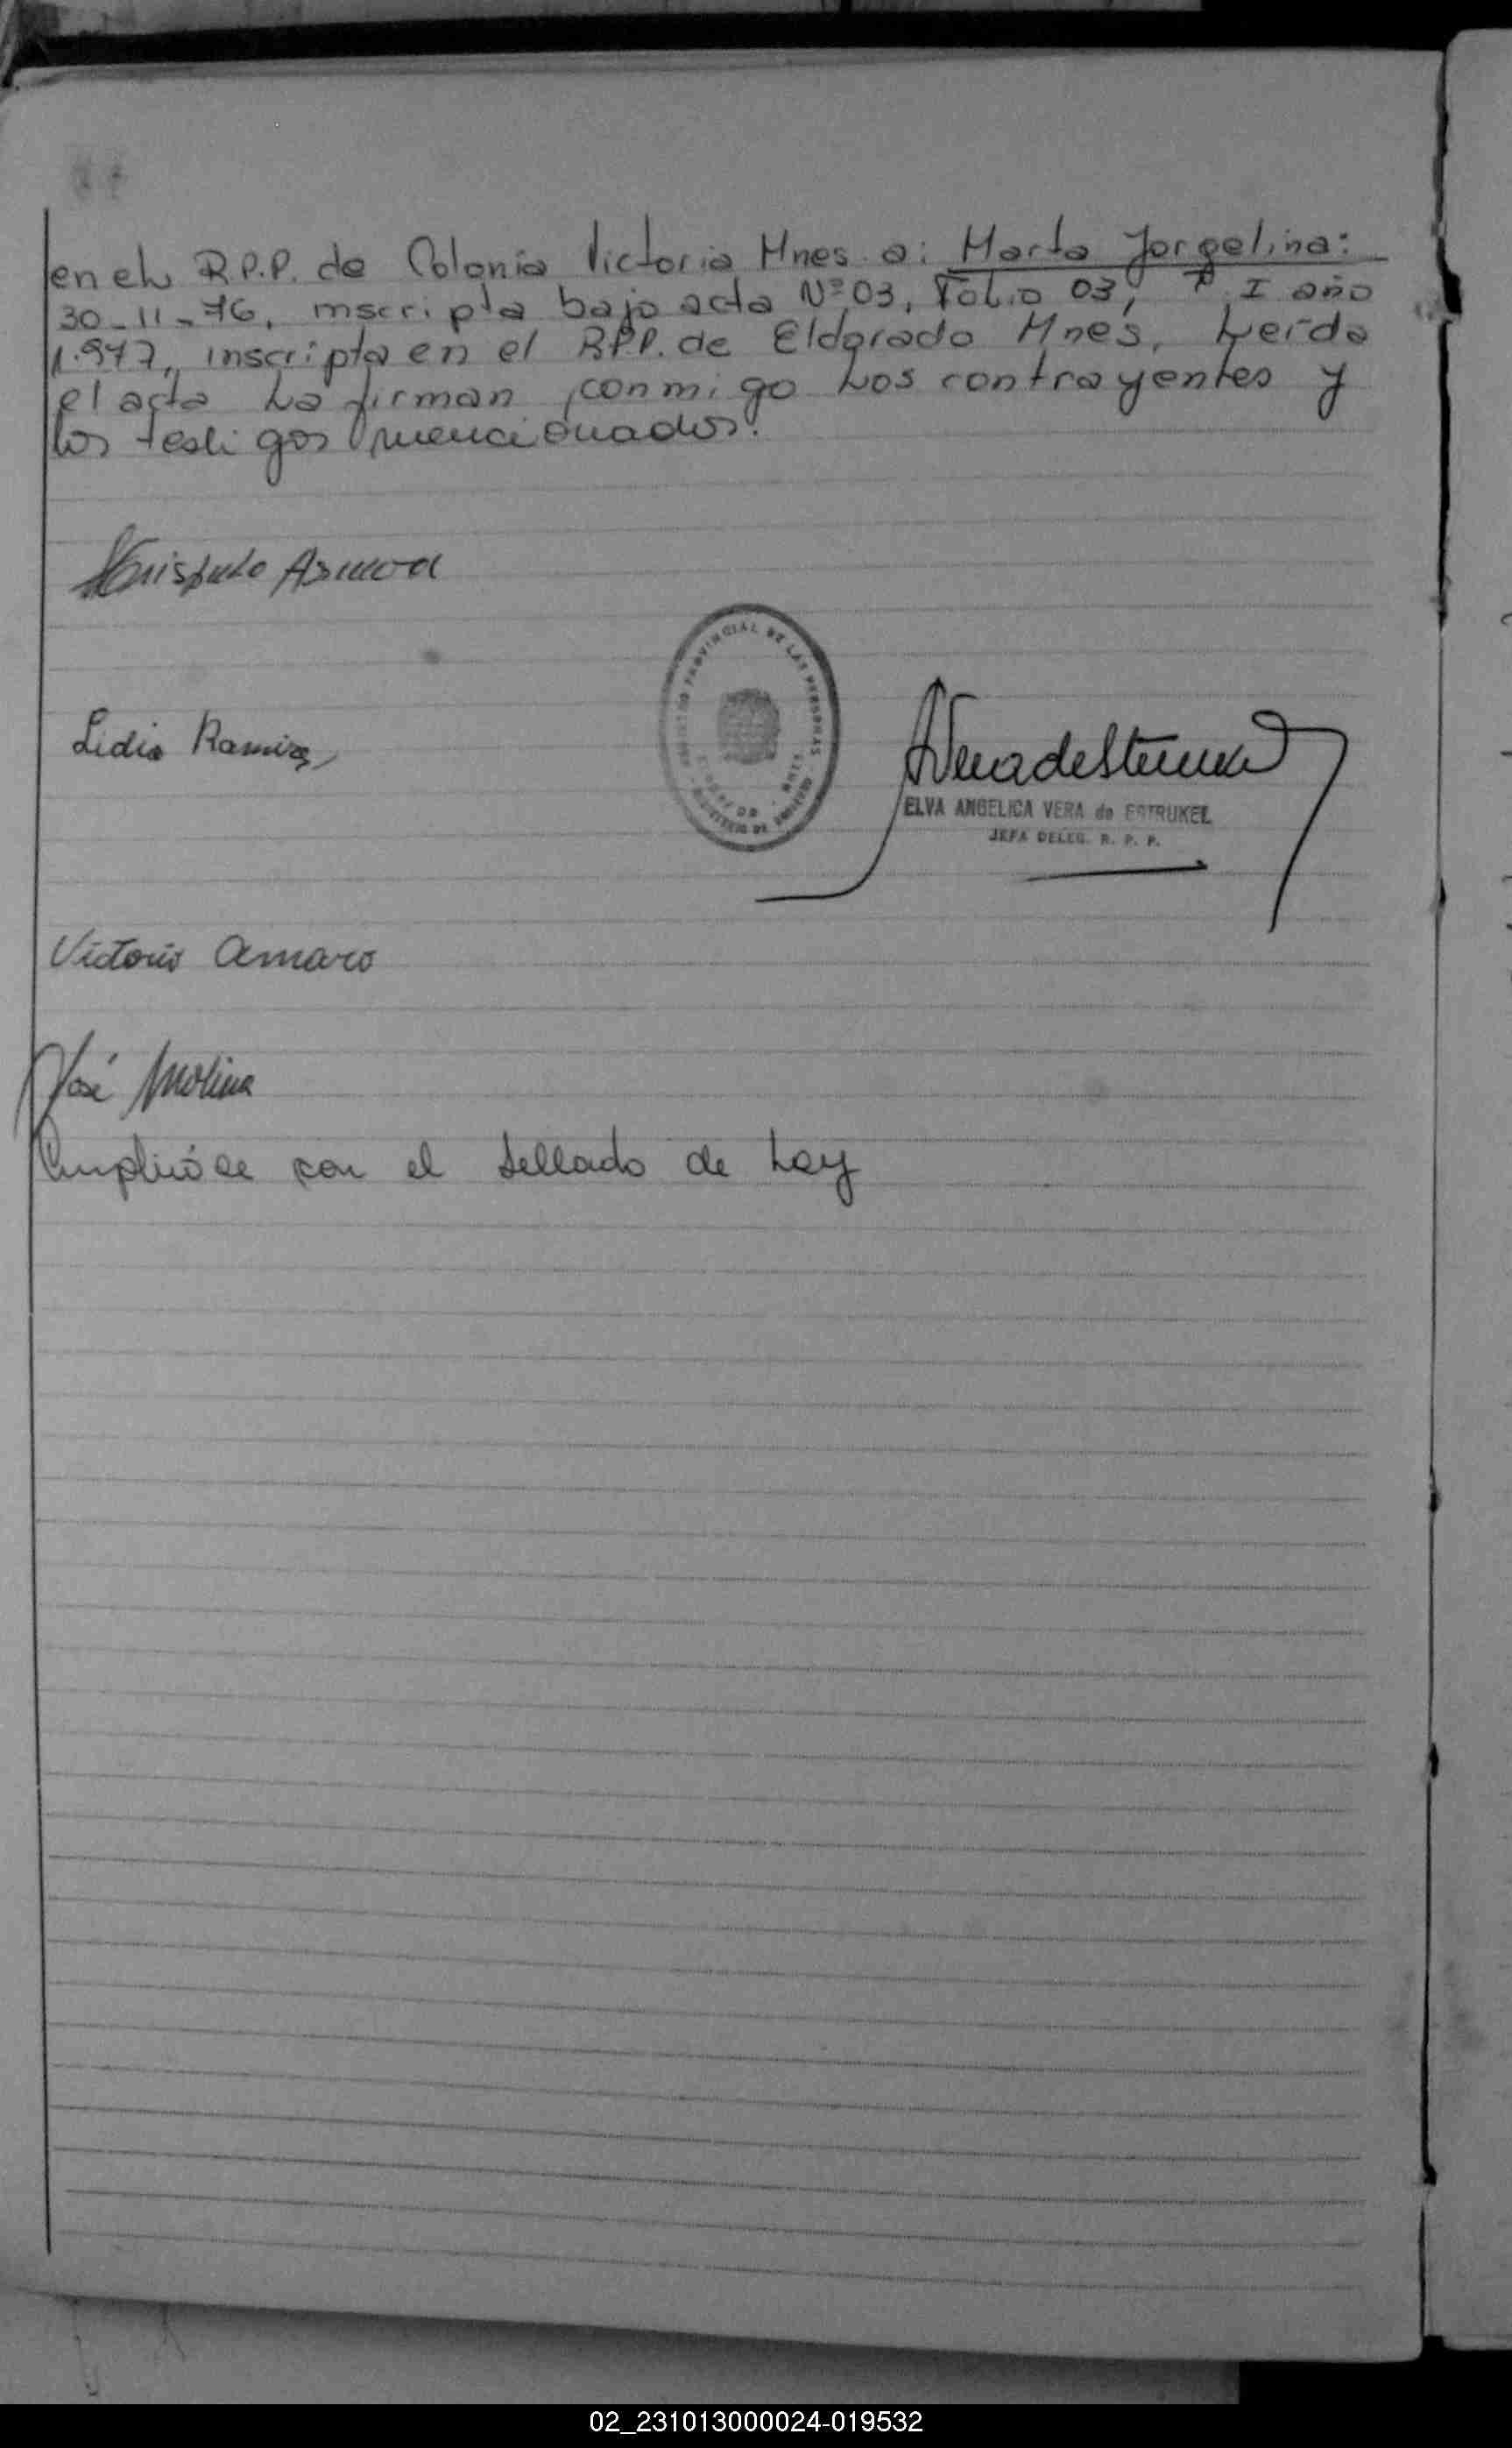 en el R.P.P. de Colonia Victoria Mnes. a: Marta Jorgelina:
30-11-76, inscripta bajo acta Nº 03, Folio 03, Tº I año
1.977, inscripta en el R.P.P. de Eldorado Mnes, Leída
el acta La firman conmigo Los contrayentes y
los testigos mencionados.
Lidia Ramirez
REGISTRO PROVINCIAL DE LAS PERSONAS
ELVA ANGELICA VERA de ESTRUKEL
JEFA DELEG. R. P. P.
Victorio Amaro
José Molina
Cumplióse con el Sellado de Ley
02_231013000024-019532